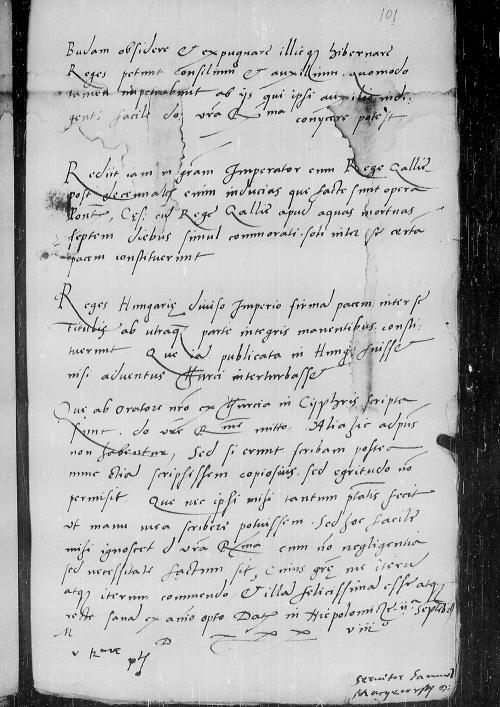 101
Budam obsidere & expugnare illicq3 hibernare
Reges petunt Consilium & auxilium. quomodo
tamen impetrabunt ab ijs qui ipsi auxilio indi-
gent: facile do. vra Rma conijcere potest

Redijt iam in gram Imperator cum Rege Gallie
post decennales enim inducias que facte sunt opera
Pont. Ces: cum Rege Gallie apud aquas mortuas
septem diebus simul commorati. soli inter se certa
pacem constituerunt

Reges Hungarie diuiso Imperio firma pacem inter se
Titulis ab utraq3 parte integris manentibus. consti-
tuerunt Que ia publicata in Hung. fuisse
nisi aduentus Thurci interturbasse

Que ab Oratore nro ex Thurcia in Cyphris scripta
sunt. do vre Rme mitto. Alia hic ad pns
non habentur, Sed si erunt scribam postea
nunc etia scripsissem copiosius. sed egritudo no
permisit Que nec ipsi mihi tantum ptatis fecit
ut manu mea scribere potuissem. Sed hoc facile
mihi ignoscet d vra Rma cum no negligentia
sed necessitate factum sit, Cuius gre me itera
atq3 iterum commendo & illa felicissima esse atq3
recte sana ex aio opto Dat in Niepolomice Septemb
viii
M
D xxx
v Rme

seruitor Samuel
Maczyeiowsky